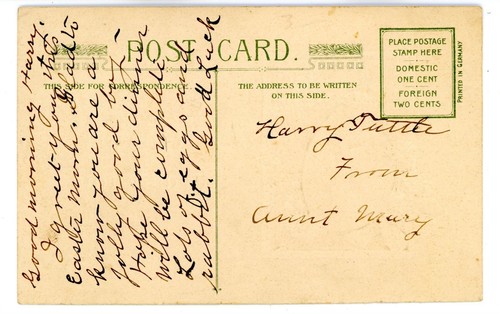 POST CARD.
THIS SIDE FOR CORRESPONDENCE.
THE ADDRESS TO BE WRITTEN
ON THIS SIDE.
PLACE POSTAGE
STAMP HERE
DOMESTIC
ONE CENT
FOREIGN
TWO CENTS
PRINTED IN GERMANY
Good morning Harry.
I greet you this
Easter morn. Glad to
know you are a
jolly good boy
Hope your dinner
will be complete
Lots of eggs and
rabbit. Good Luck
Harry Tuttle
From
Aunt Mary